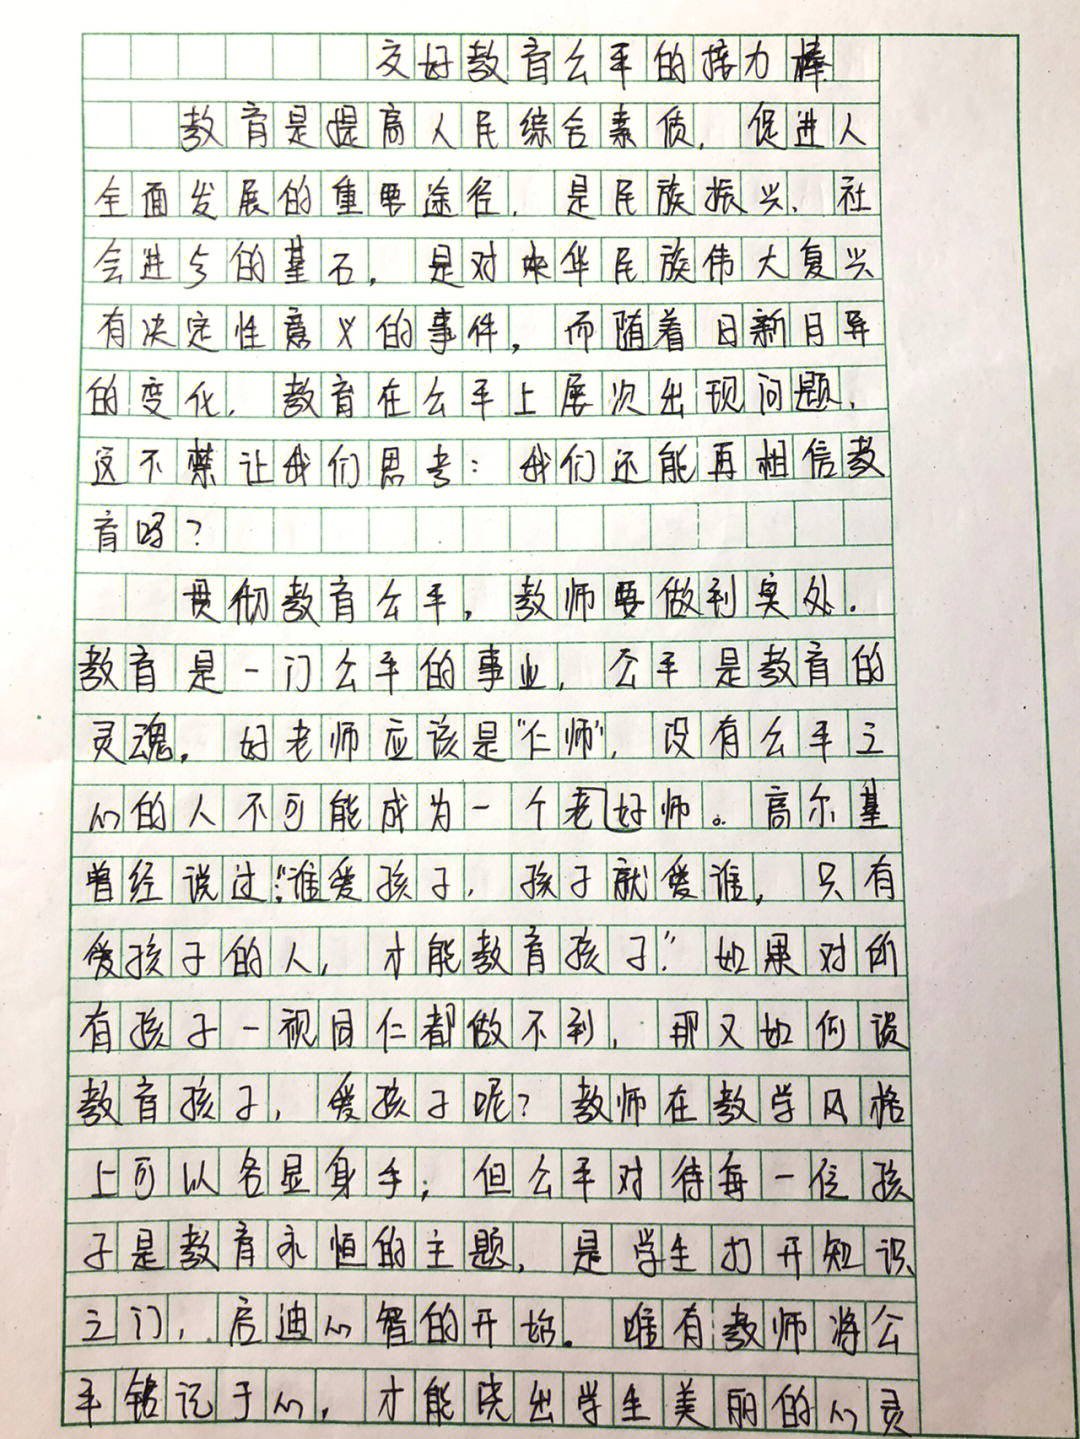 交好教育公平的接力棒
教育是提高人民综合素质，促进人
全面发展的重要途径，是民族振兴、社
会进步的基石，是对中华民族伟大复兴
有决定性意义的事件，而随着日新月异
的变化，教育在公平上屡次出现问题，
这不禁让我们思考：我们还能再相信教
育吗？
贯彻教育公平，教师要做到实处。
教育是一门公平的事业，公平是教育的
灵魂，好老师应该是“仁师”，没有公平之
心的人不可能成为一个老好师。高尔基
曾经说过：“谁爱孩子，孩子就爱谁，只有
爱孩子的人，才能教育孩子。”如果对所
有孩子一视同仁都做不到，那又如何谈
教育孩子，爱孩子呢？教师在教学风格
上可以各显身手；但公平对待每一位孩
子是教育永恒的主题，是学生打开知识
之门，启迪心智的开始。唯有教师将公
平铭记于心，才能浇出学生美丽的心灵